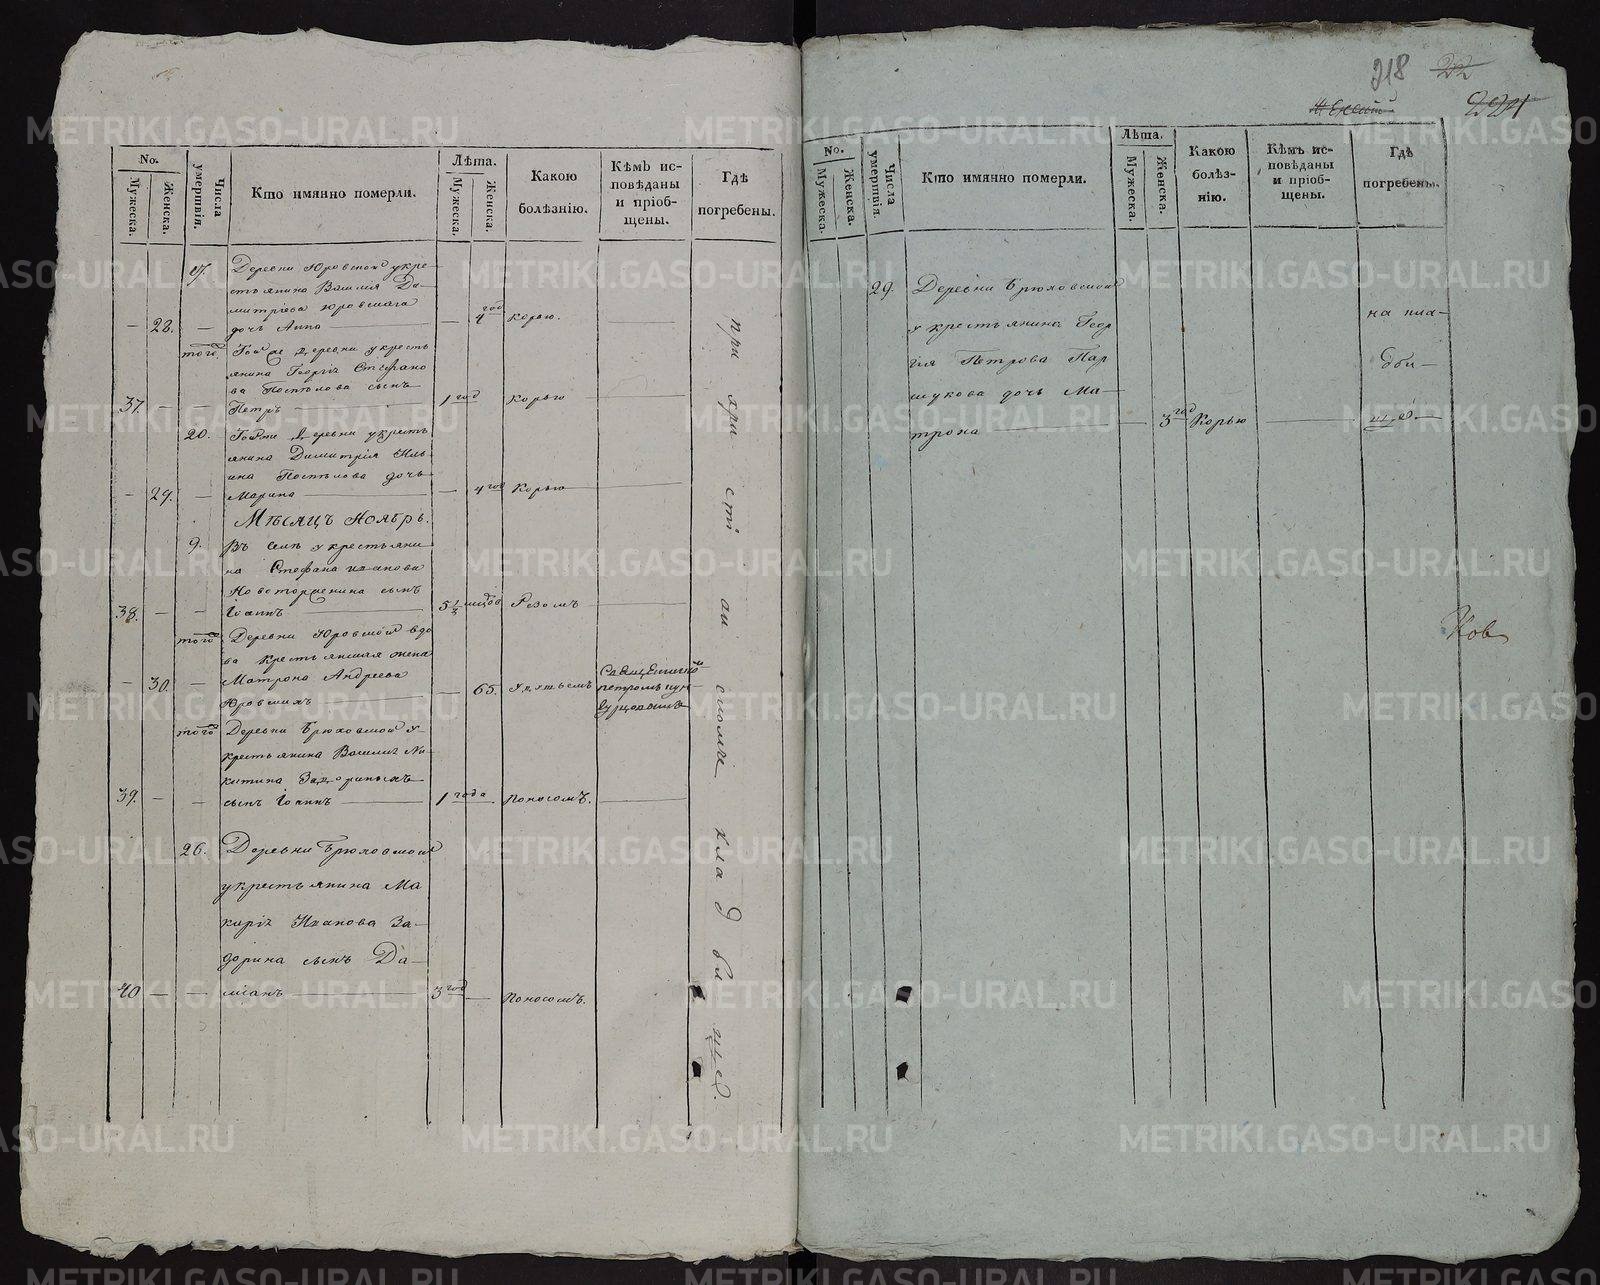 218 22
224
No.
Мужеска.
Женска.
Числа умертвія.
Кто имянно померли.
Лѣта.
Мужеска.
Женска.
Какою болѣзнію.
Кѣмъ ис-
повѣданы
и пріоб-
щены.
Гдѣ
погребены.
17. Деревни Юровской укре-
стьянина Василія Ди-
митріева Юровскаго
— 28. — дочь Анна — 4 год Корью.
того Той же деревни укресть
янина Георгія Стефано
ва Постѣлова сынъ
37. — Петръ 1 год Корью
20. Той же деревни укресть
янина Димитрія Иль
ина Постѣлова дочь
— 29. — Марина — 4 год Корью
Мѣсяцъ Ноябрь.
9. Въ селѣ укрестьяни
на Стефана Иванова
Новоторженина сынъ
38. — — Іоаннъ 5 1/2 Резомъ
того Деревни Юровской вдо
ва крестьянская жена
— 30. — Матрона Андреева — 65. Священникомъ
Юровскихъ Петромъ
того Деревни Брюховской у-
крестьянина Василія Ни-
китина Задориныхъ
39. — — сынъ Іоаннъ 1 года Поносомъ.
26. Деревни Брюховской
укрестьянина Ма
карія Иванова За-
дорина сынъ Да-
40 — — міанъ 3 год — Поносомъ.
при кладбищѣ.
No.
Мужеска.
Женска.
Числа умертвія.
Кто имянно померли.
Лѣта.
Мужеска.
Женска.
Какою
болѣз-
нію.
Кѣмъ ис-
повѣданы
и пріоб-
щены.
Гдѣ
погребены.
29. Деревни Брюховской
укрестьянина Геор
гія Петрова Пар
шукова дочь Ма-
трона — 3 год Корью
на кла-
дби-
щѣ.
Ков
METRIKI.GASO-URAL.RU